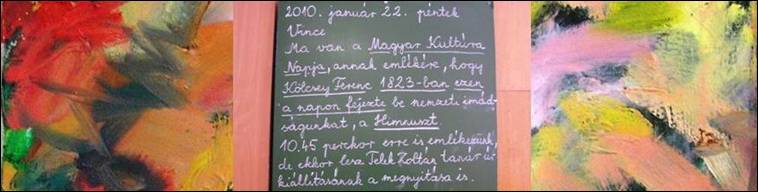 2010. január 22. péntek
Vince
Ma van a Magyar Kultúra
Napja, annak emlékére, hogy
Kölcsey Ferenc 1823-ban ezen
a napon fejezte be nemzeti imád-
ságunkat, a Himnuszt.
10.45 perckor erre is emlékezünk,
de ekkor lesz Telek Zoltán tanár úr
kiállításának a megnyitása is.